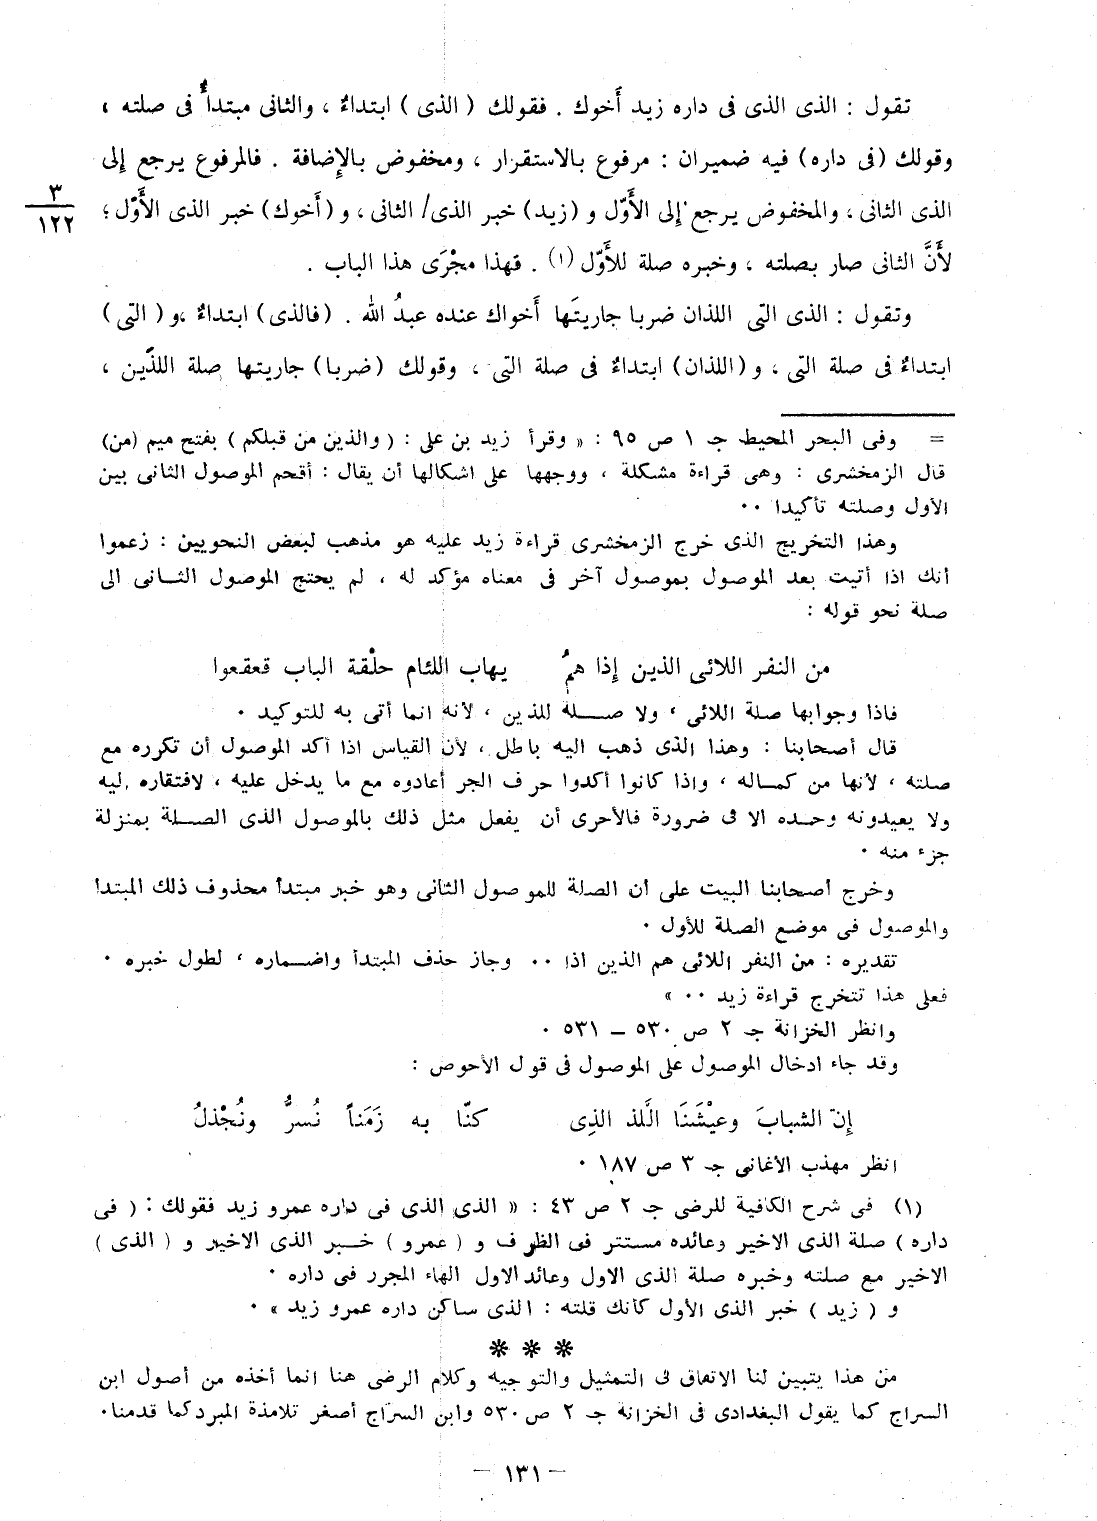 تقول : الذى الذى فى داره زيد أَخوك . فقولك ( الذى ) ابتداءٌ ، والثانى مبتدأٌ فى صلته ،
وقولك (فى داره) فيه ضميران : مرفوع بالاستقرار ، ومخفوض بالإِضافة . فالمرفوع يرجع إلى
الذى الثانى ، والمخفوض يرجع إلى الأَوّل و (زيد) خبر الذى/ الثانى ، و (أَخوك) خبر الذى الأَوّل ؛
٣
١٢٢
لأَنَّ الثانى صار بصلته ، وخبره صلة للأَوّل (١) . فهذا مجْرَى هذا الباب .
وتقول : الذى التى اللذان ضربا جاريتَها أَخواك عنده عبدُ الله . (فالذى) ابتداءٌ ،و (التى)
ابتداءٌ فى صلة التى ، و (اللذان) ابتداءٌ فى صلة التى ، وقولك (ضربا) جاريتها صلة اللذَين ،
= وفى البحر المحيط جـ ١ ص ٩٥ : « وقرأ زيد بن على : ( والذين من قبلكم ) بفتح ميم (من)
قال الزمخشرى : وهى قراءة مشكلة ، ووجهها على اشكالها أن يقال : أقحم الموصول الثانى بين
الأول وصلته تأكيدا ٠٠
وهذا التخريج الذى خرج الزمخشرى قراءة زيد عليه هو مذهب لبعض النحويين : زعموا
أنك اذا أتيت بعد الموصول بموصول آخر فى معناه مؤكد له ، لم يحتج الموصول الثانى الى
صلة نحو قوله :
من النفر اللائى الذين إذا همُ يهاب اللئام حلْقة الباب قعقعوا
فاذا وجوابها صلة اللائى ، ولا صلة للذين ، لأنه انما أتى به للتوكيد ٠
قال أصحابنا : وهذا الذى ذهب اليه باطل ، لأن القياس اذا أكد الموصول أن تكرره مع
صلته ، لأنها من كماله ، واذا كانوا أكدوا حرف الجر أعادوه مع ما يدخل عليه ، لافتقاره اليه
ولا يعيدونه وحده الا فى ضرورة فالأحرى أن يفعل مثل ذلك بالموصول الذى الصلة بمنزلة
جزء منه ٠
وخرج أصحابنا البيت على أن الصلة للموصول الثانى وهو خبر مبتدأ محذوف ذلك المبتدأ
والموصول فى موضع الصلة للأول ٠
تقديره : من النفر اللائى هم الذين اذا ٠٠ وجاز حذف المبتدأ واضماره ، لطول خبره ٠
فعلى هذا تتخرج قراءة زيد ٠٠ »
وانظر الخزانة جـ ٢ ص ٥٣٠ – ٥٣١ ٠
وقد جاء ادخال الموصول على الموصول فى قول الأحوص :
إِنّ الشبابَ وعيْشَنَا الَّلذ الذِى كنّا به زَمَناً نُسرُّ ونُجْذلُ
انظر مهذب الأغانى جـ ٣ ص ١٨٧ ٠
(١) فى شرح الكافية للرضى جـ ٢ ص ٤٣ : « الذى الذى فى داره عمرو زيد فقولك : ( فى
داره ) صلة الذى الاخير وعائده مستتر فى الظرف و ( عمرو ) خبر الذى الاخير و ( الذى )
الاخير مع صلته وخبره صلة الذى الاول وعائد الاول الهاء المجرر فى داره ٠
و ( زيد ) خبر الذى الأول كأنك قلته : الذى ساكن داره عمرو زيد » ٠
* * *
من هذا يتبين لنا الاتفاق فى التمثيل والتوجيه وكلام الرضى هنا انما أخذه من أصول ابن
السراج كما يقول البغدادى فى الخزانة جـ ٢ ص ٥٣٠ وابن السراج أصغر تلامذة المبرد كما قدمنا٠
– ١٣١ –